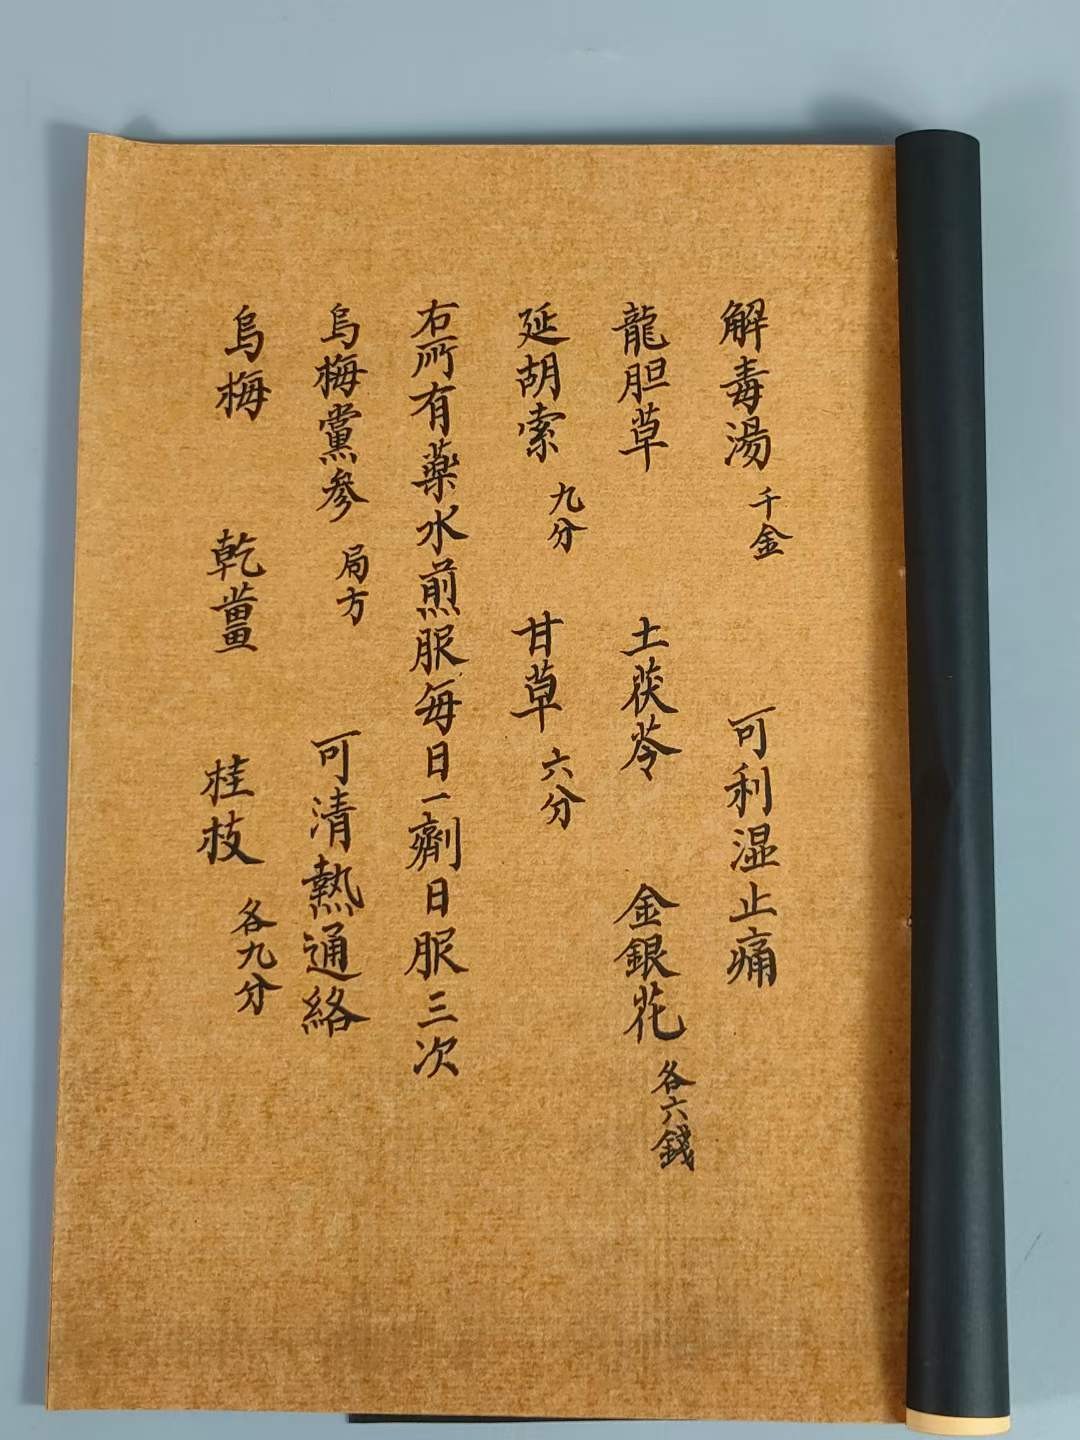 解毒湯 千金 可利湿止痛
龍胆草 土茯苓 金銀花 各六錢
延胡索 九分 甘草 六分
右所有藥水煎服每日一劑日服三次
烏梅黨參 局方 可清熱通絡
烏梅 乾薑 桂枝 各九分